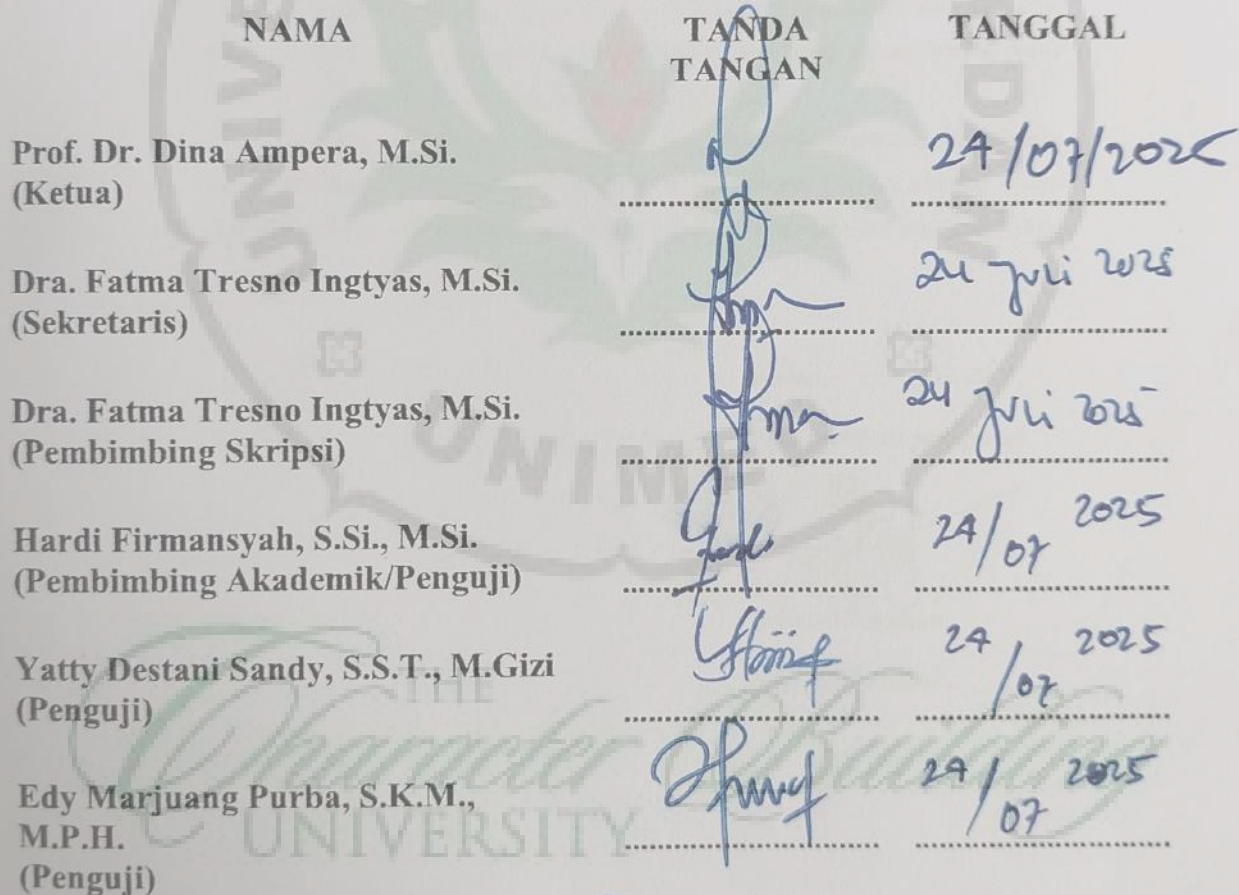 NAMA TANDA TANGAN TANGGAL
Prof. Dr. Dina Ampera, M.Si.
(Ketua)
24/07/2025
Dra. Fatma Tresno Ingtyas, M.Si.
(Sekretaris)
24 Juli 2025
Dra. Fatma Tresno Ingtyas, M.Si.
(Pembimbing Skripsi)
24 Juli 2025
Hardi Firmansyah, S.Si., M.Si.
(Pembimbing Akademik/Penguji)
24/07 2025
Yatty Destani Sandy, S.S.T., M.Gizi
(Penguji)
24/07 2025
Edy Marjuang Purba, S.K.M.,
M.P.H.
(Penguji)
24/07 2025
UNIMED
THE
Character Building
UNIVERSITY